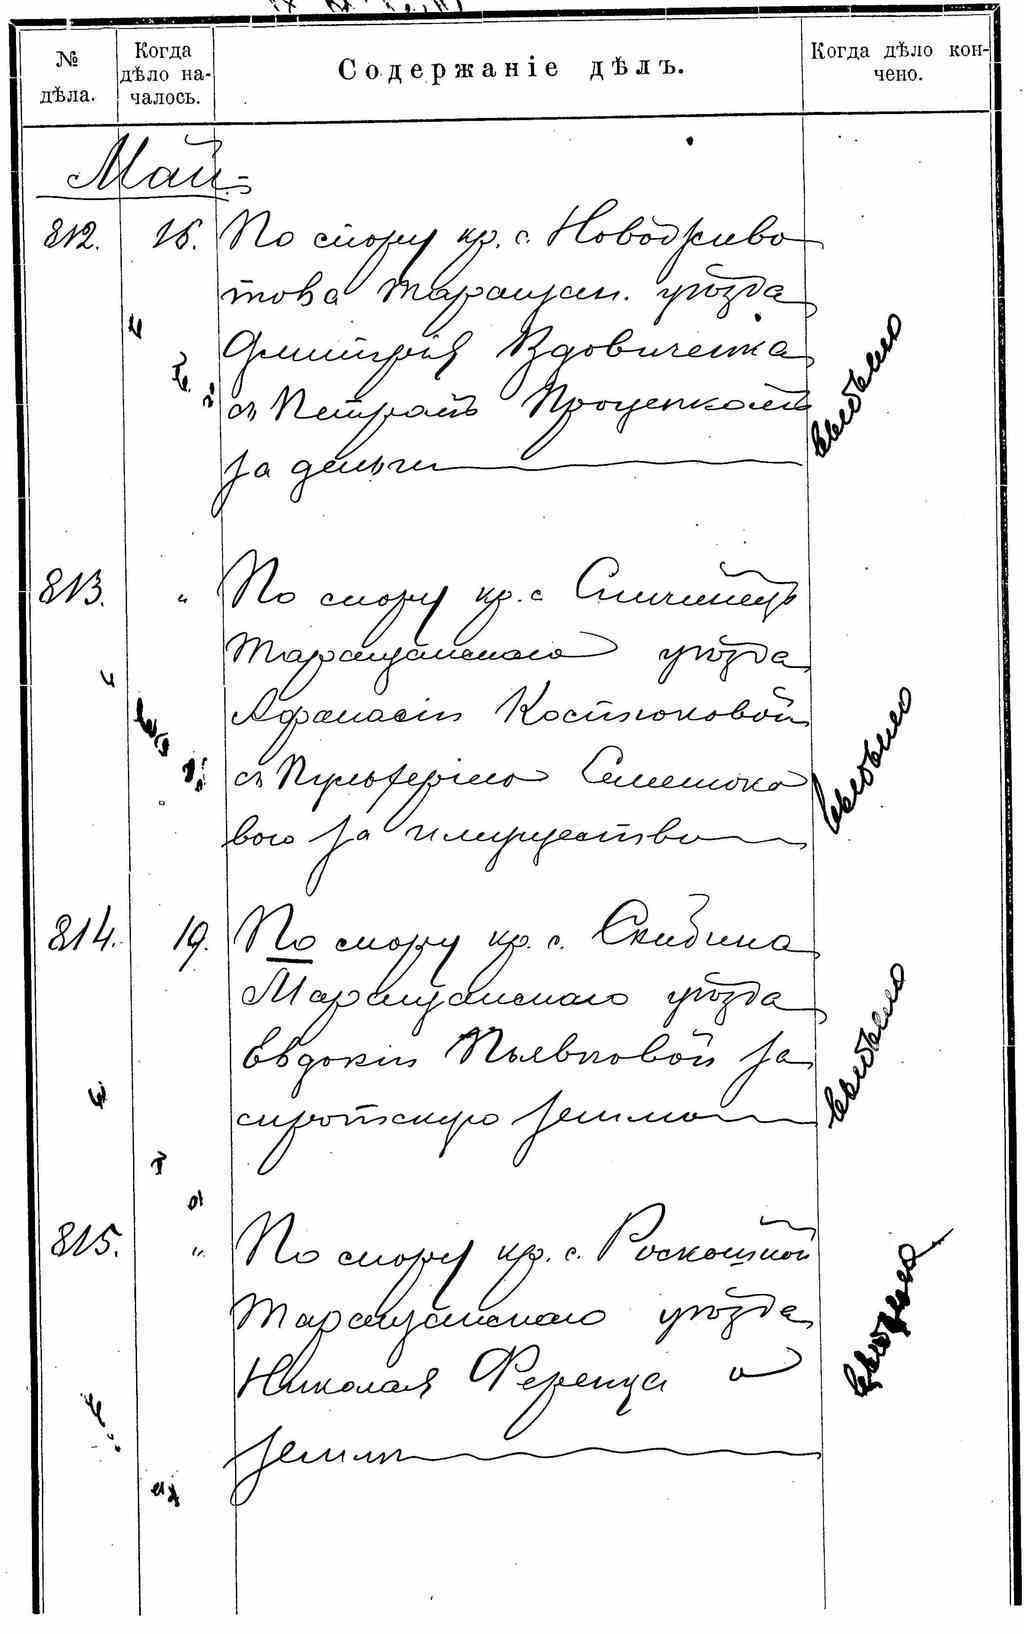 № дѣла.
Когда дѣло на-
чалось.
Содержаніе дѣлъ.
Когда дѣло кон-
чено.
Май
812. 16. По спору кр. с. Новоживо
това Таращан. уѣзда
Дмитрія Вдовиченка
съ Петромъ Проценкомъ
за деньги
выбыло
813. " По спору кр. с. Снѣжинецъ
Таращанскаго уѣзда
Афанасіи Костюковой
съ Пульхеріею Семенюко
вою за имущество
выбыло
814. 19. По спору кр. с. Скибина
Таращанскаго уѣзда
Евдокіи Пьявковой за
сиротскую землю
выбыло
815. " По спору кр. с. Роскошной
Таращанскаго уѣзда
Николая Ференца о
землѣ